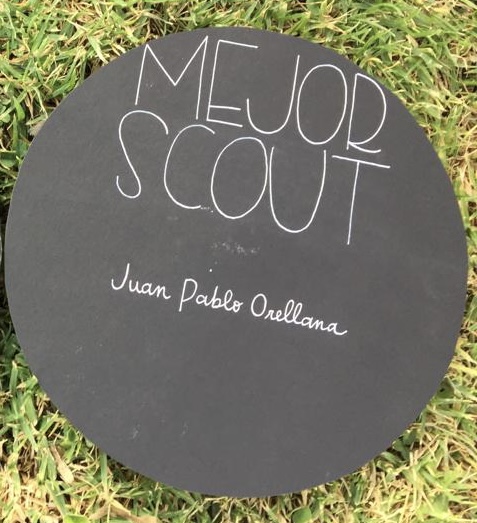 MEJOR
SCOUT
Juan Pablo Orellana